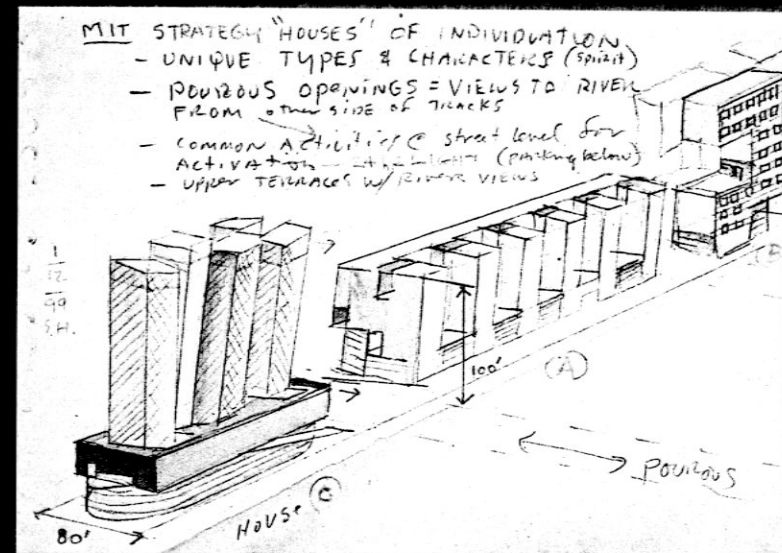 MIT STRATEGY "HOUSES" OF INDIVIDUATION
- UNIQUE TYPES & CHARACTERS (spirit)
- POUROUS OPENINGS = VIEWS TO RIVER
FROM other SIDE OF TRACKS
- COMMON ACTIVITIES @ street level for
ACTIVATION (parking below)
- UPPER TERRACES W/ RIVER VIEWS
1
12
99
S.H.
100'
(B)
(A)
POUROUS
HOUSE (C)
80'